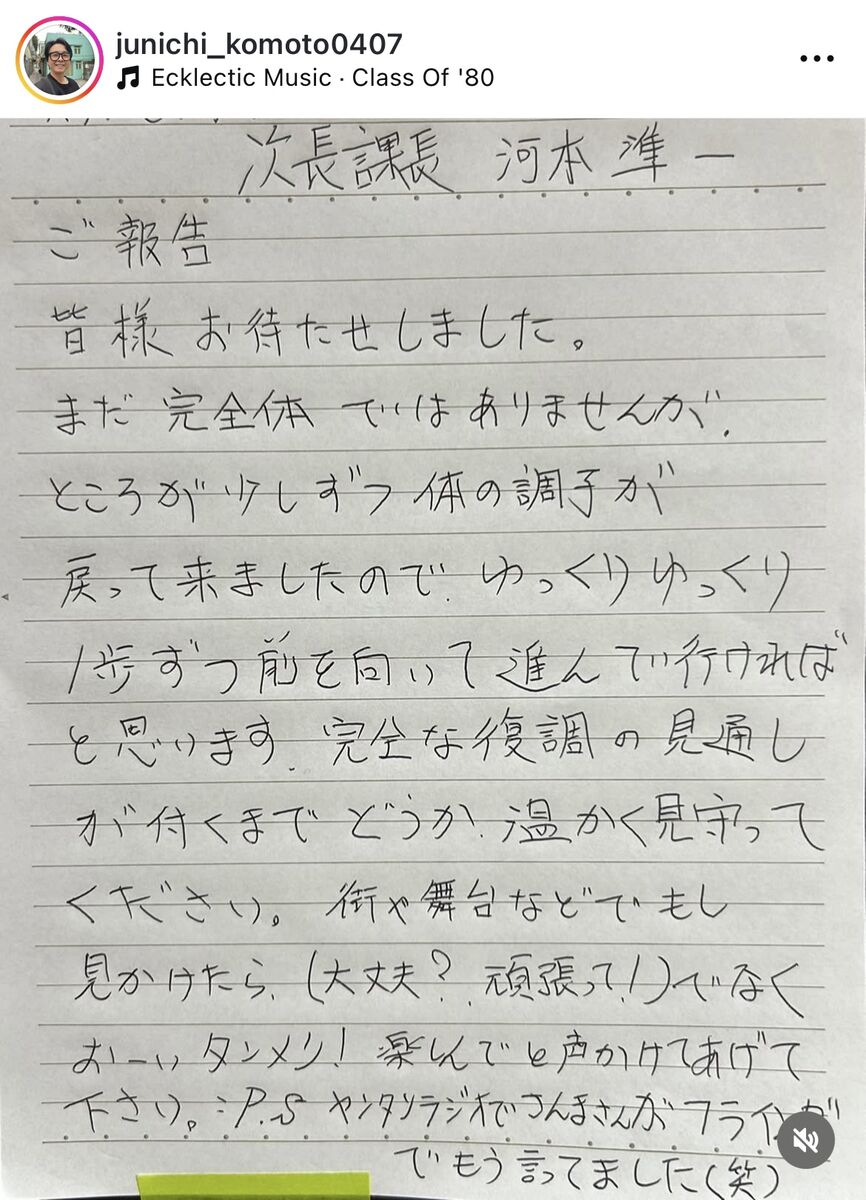 junichi_komoto0407
Ecklectic Music · Class Of '80
次長課長 河本準一
ご報告
皆様 お待たせしました。
まだ 完全体 ではありませんが、
ところが少しずつ 体の調子が
戻って来ましたので、ゆっくりゆっくり
1歩ずつ前を向いて進んで行ければ
と思います、完全な復調の見通し
が付くまで どうか、温かく見守って
ください。 街や舞台などでもし
見かけたら、(大丈夫?、頑張って!)でなく
おーいタンメン! 楽しんでと声かけてあげて
下さい。:P.S ヤンタンラジオでさんまさんがフライングが
でもう言ってました(笑)